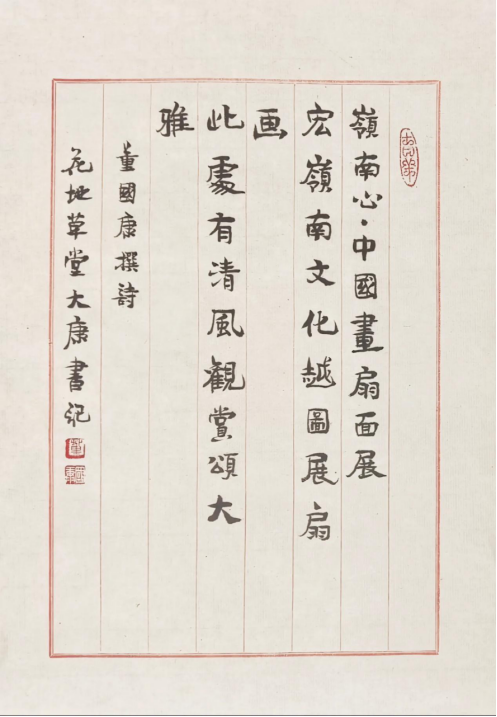 嶺南心·中國畫扇面展
宏嶺南文化越圖展扇
画
此處有清風観賞頌大
雅
董國康撰詩
花地草堂大康書記